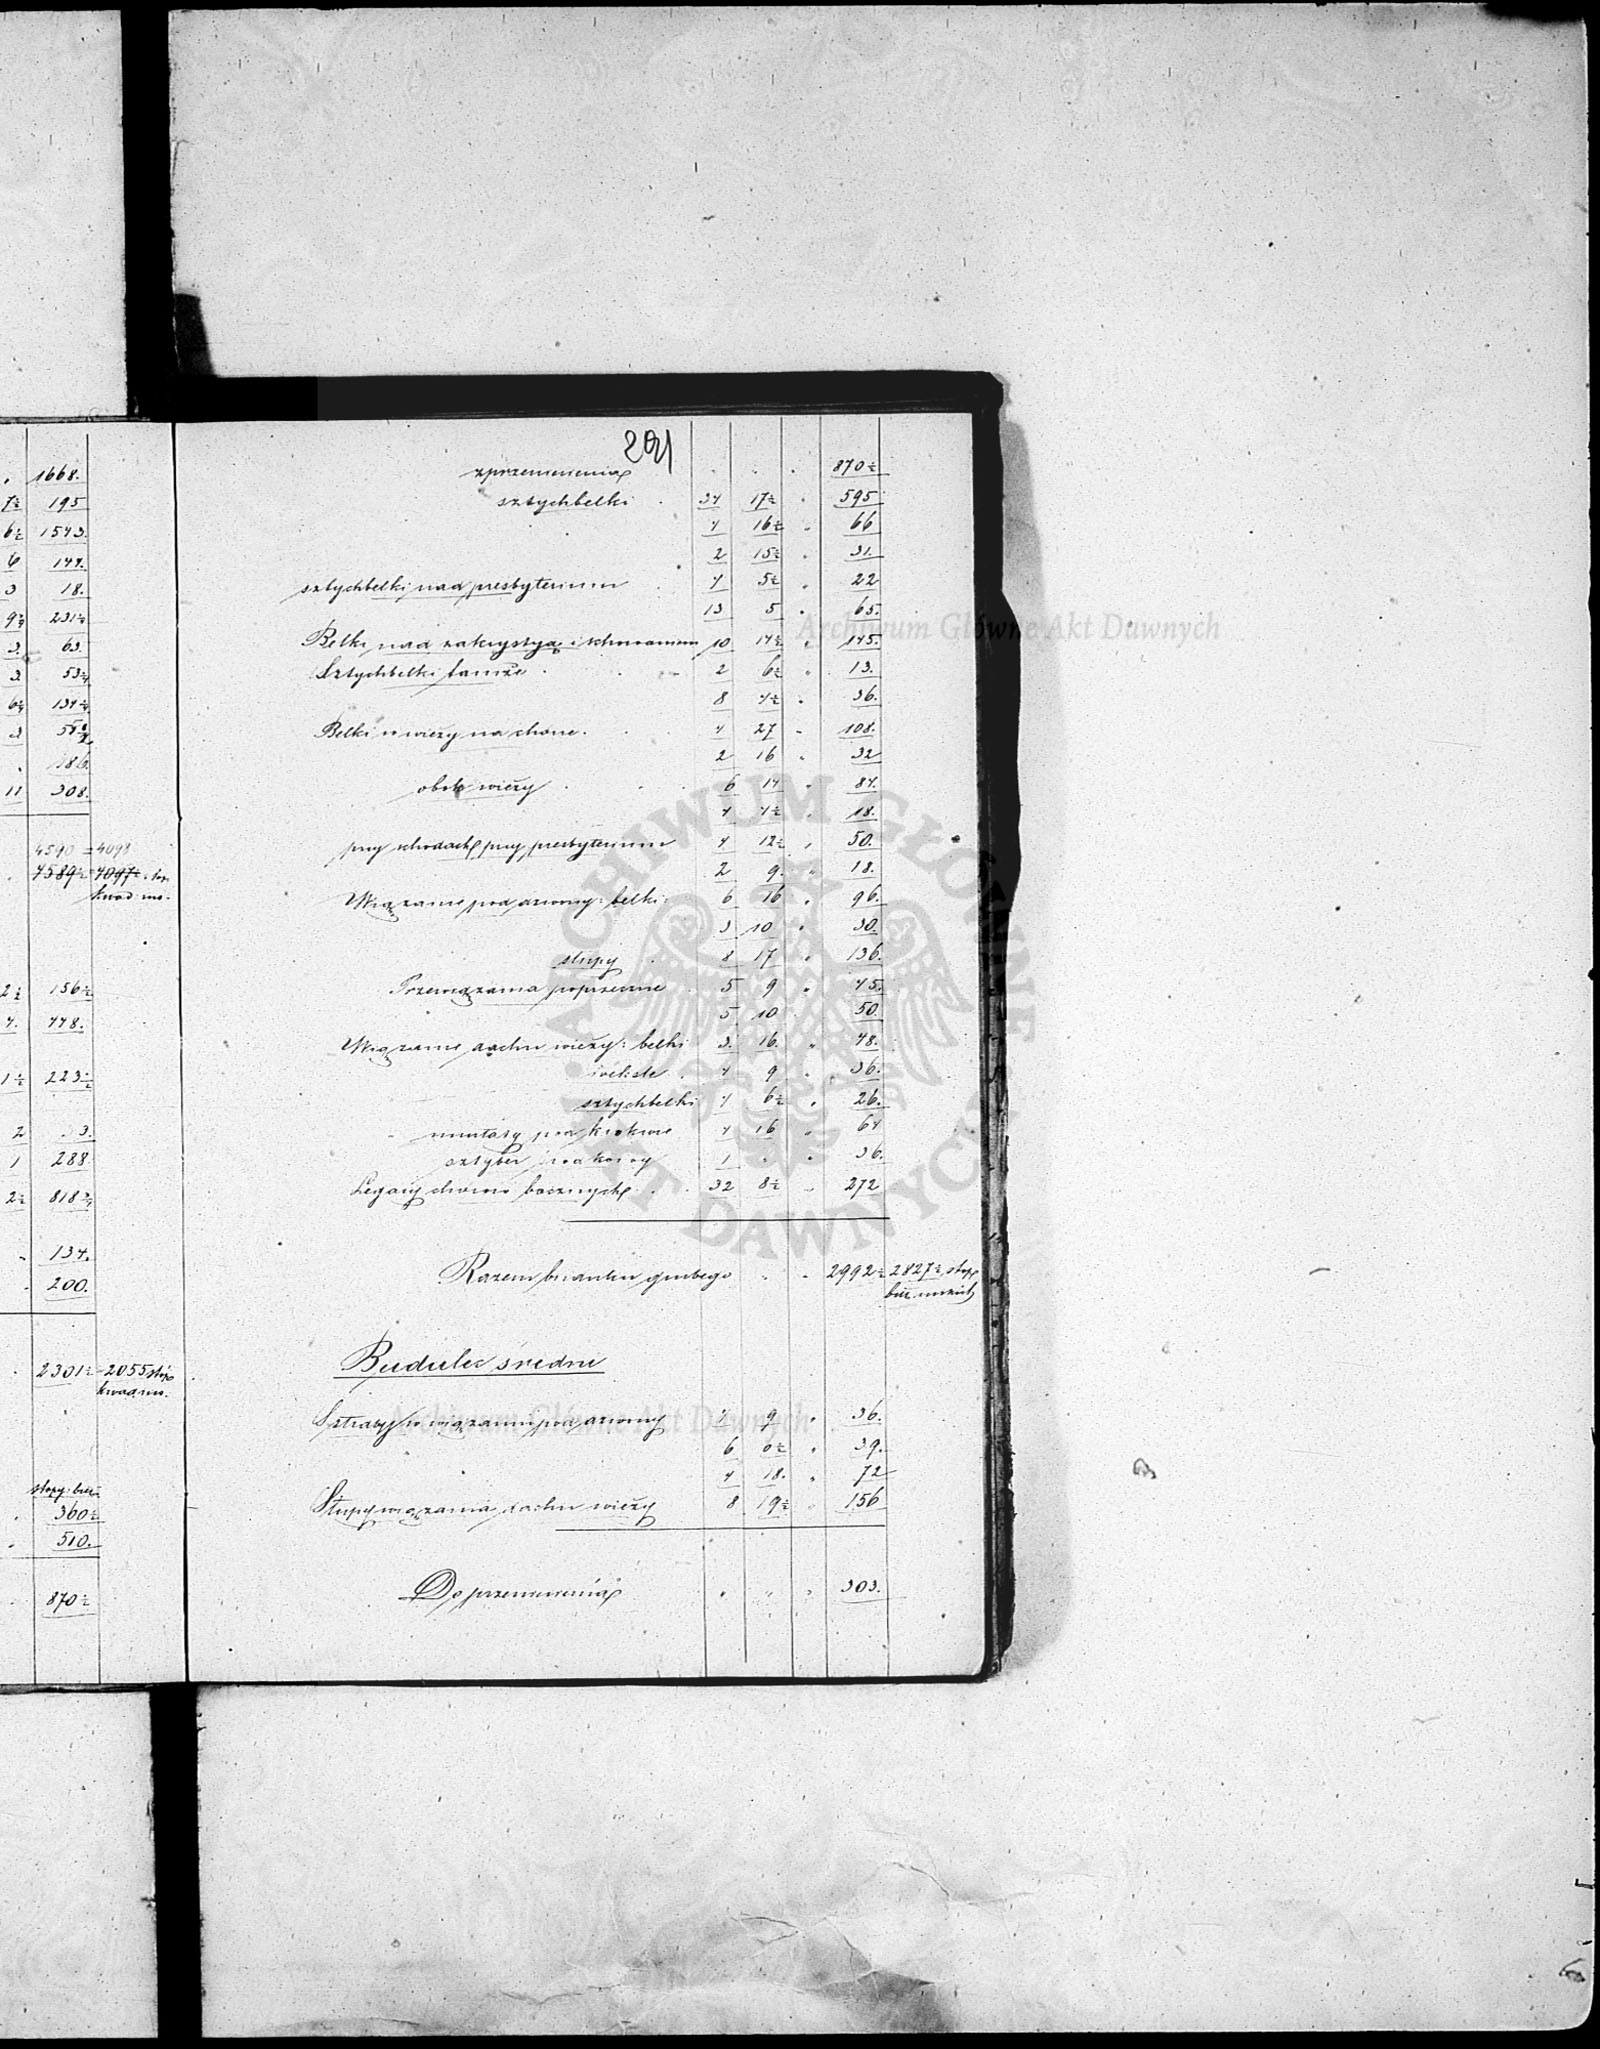 1668.
7½ 195
6½ 1543.
6 144.
3 18.
9¾ 231¼
3. 63.
3
6¾
3
186.
11 308.
4590 = 4098
4589½ 4097½ stop
kwad: mo.
2½ 156½
4. 448.
1½ 223½
2 3.
1 288.
2½ 818¾
134.
200.
2301½ - 2055 stop
kwad. mo.
stopy: bież
360½
510.
870½
201
z przeniesienia 870½
sztychbelki 34 17½ " 595
4 16½ " 66
2 15½ " 31.
sztychbelki nad presbyterium 4 5½ " 22
13 5 " 65.
Belki nad zakrystyą i schowaniem 10 14½ " 145.
Sztychbelki tamże 2 6½ " 13.
8 4½ " 36.
Belki w wieży na chórze. 4 27 " 108.
2 16 " 32
obok wieży 6 14 " 84.
4 4½ " 18.
przy schodach przy presbyterium 4 12½ " 50.
2 9. " 18.
Wiązanie pod dzwony: belki 6 16 " 96.
3 10 " 30.
słupy 8 17 " 136.
Przewiązania poprzeczne 5 9 " 45.
5 10 50.
Wiązanie dachu wieży: belki 3. 16. " 48.
4 9 " 36.
sztychbelki 4 6½ " 26.
murłaty pod krokwie 4 16 " 64
sztyber 1 " " 36.
Legary chórów bocznych 32 8½ " 272
Razem budulcu grubego " " 2992½ 2827½ stop
bież.
Budulec średni
Sztraby w wiązaniu pod dzwony 4 9 " 36.
6 6½ " 39.
4 18. " 72
Słupy wiązania dachu wieży 8 19½ " 156
Do przeniesienia " " " 303.
Archiwum Główne Akt Dawnych
ARCHIWUM GŁÓWNE AKT DAWNYCH
Archiwum Główne Akt Dawnych